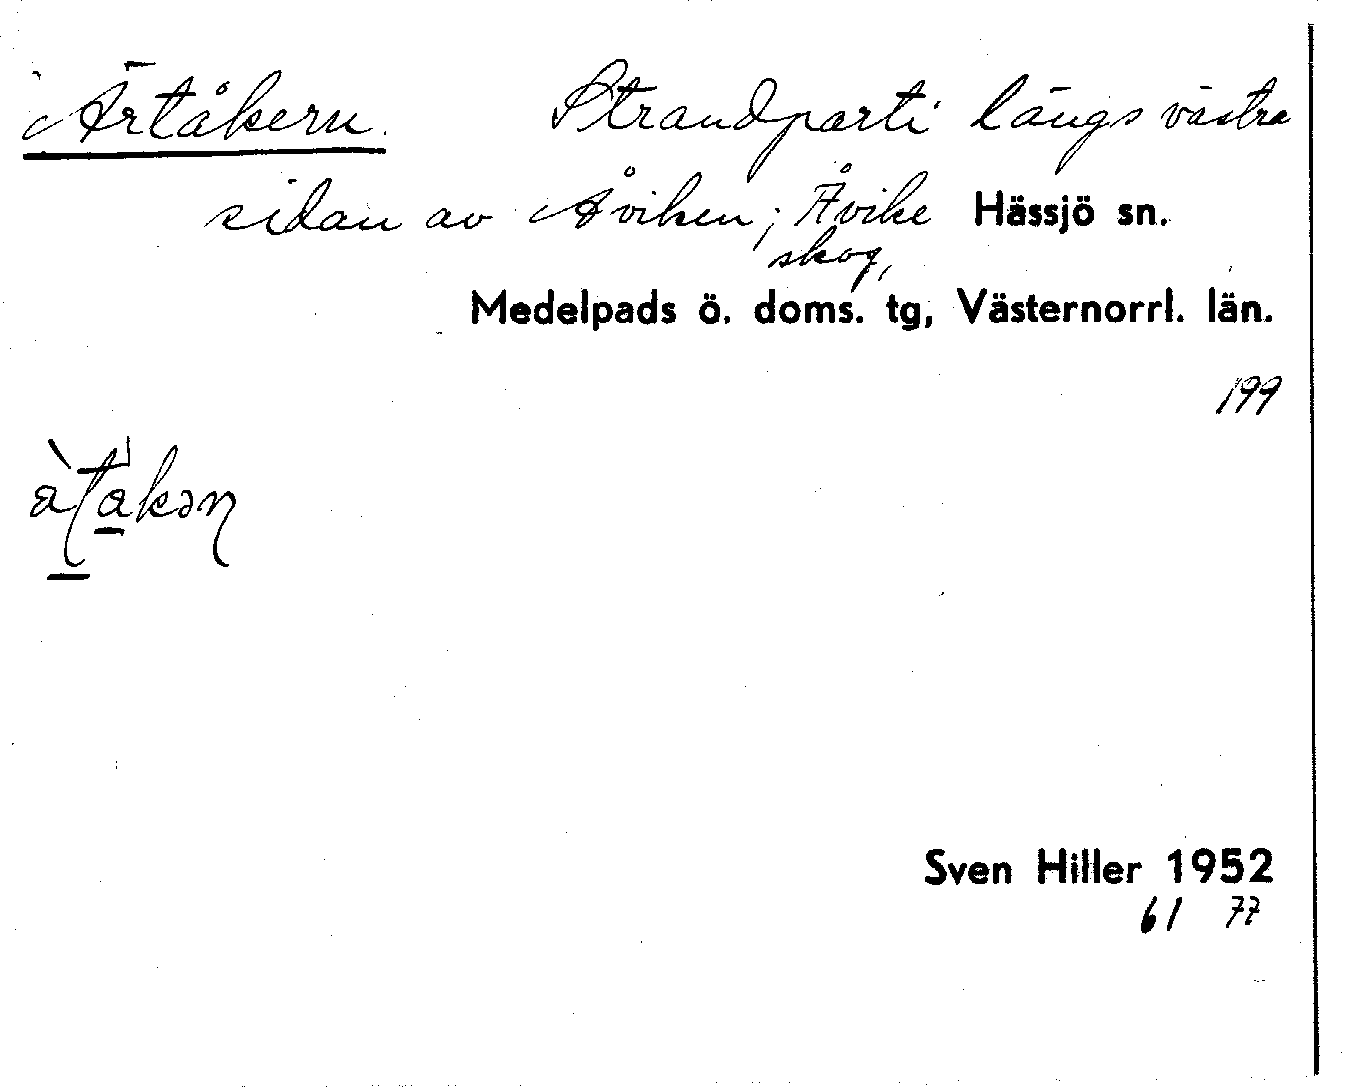 Ärtåkern. Strandparti längs västra
sidan av Åviken; Åvike Hässjö sn.
skog,
Medelpads ö. doms. tg, Västernorrl. län.
199
Sven Hiller 1952
61 77